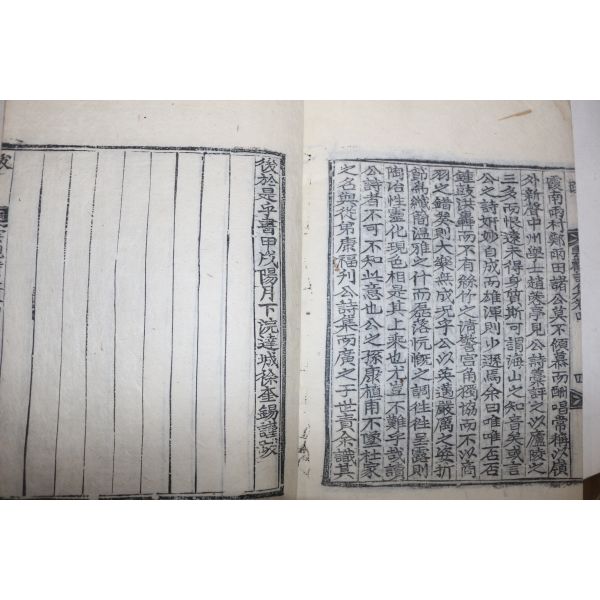 霞南雨村鄭雨田諸公莫不傾慕而酬唱常稱以嶺
外新聲中州學士趙 亭見公詩藁評之以廬陵之
三多而恨遠未得身質斯可謂海山之知音矣或言
公之詩妍妙自成而雄渾則少遜焉余曰唯唯否否
鍾鼓洪 而不有絲竹之淸警宮角獨協而不以商
羽之錯奏則大樂無成况乎公以英邁嚴厲之 折
節爲纖簡溫雅之什而磊落忼慨之調往往呈露則
陶冶性靈化現色相是其上乘也尤豈不難乎哉讀
公詩者不可不知此意也公之孫康 甫不墜杜家
之名與從弟康福刋公詩集而廣之于世責余識其
後於是乎書甲戌陽月下浣達城徐奎錫謹 
跋